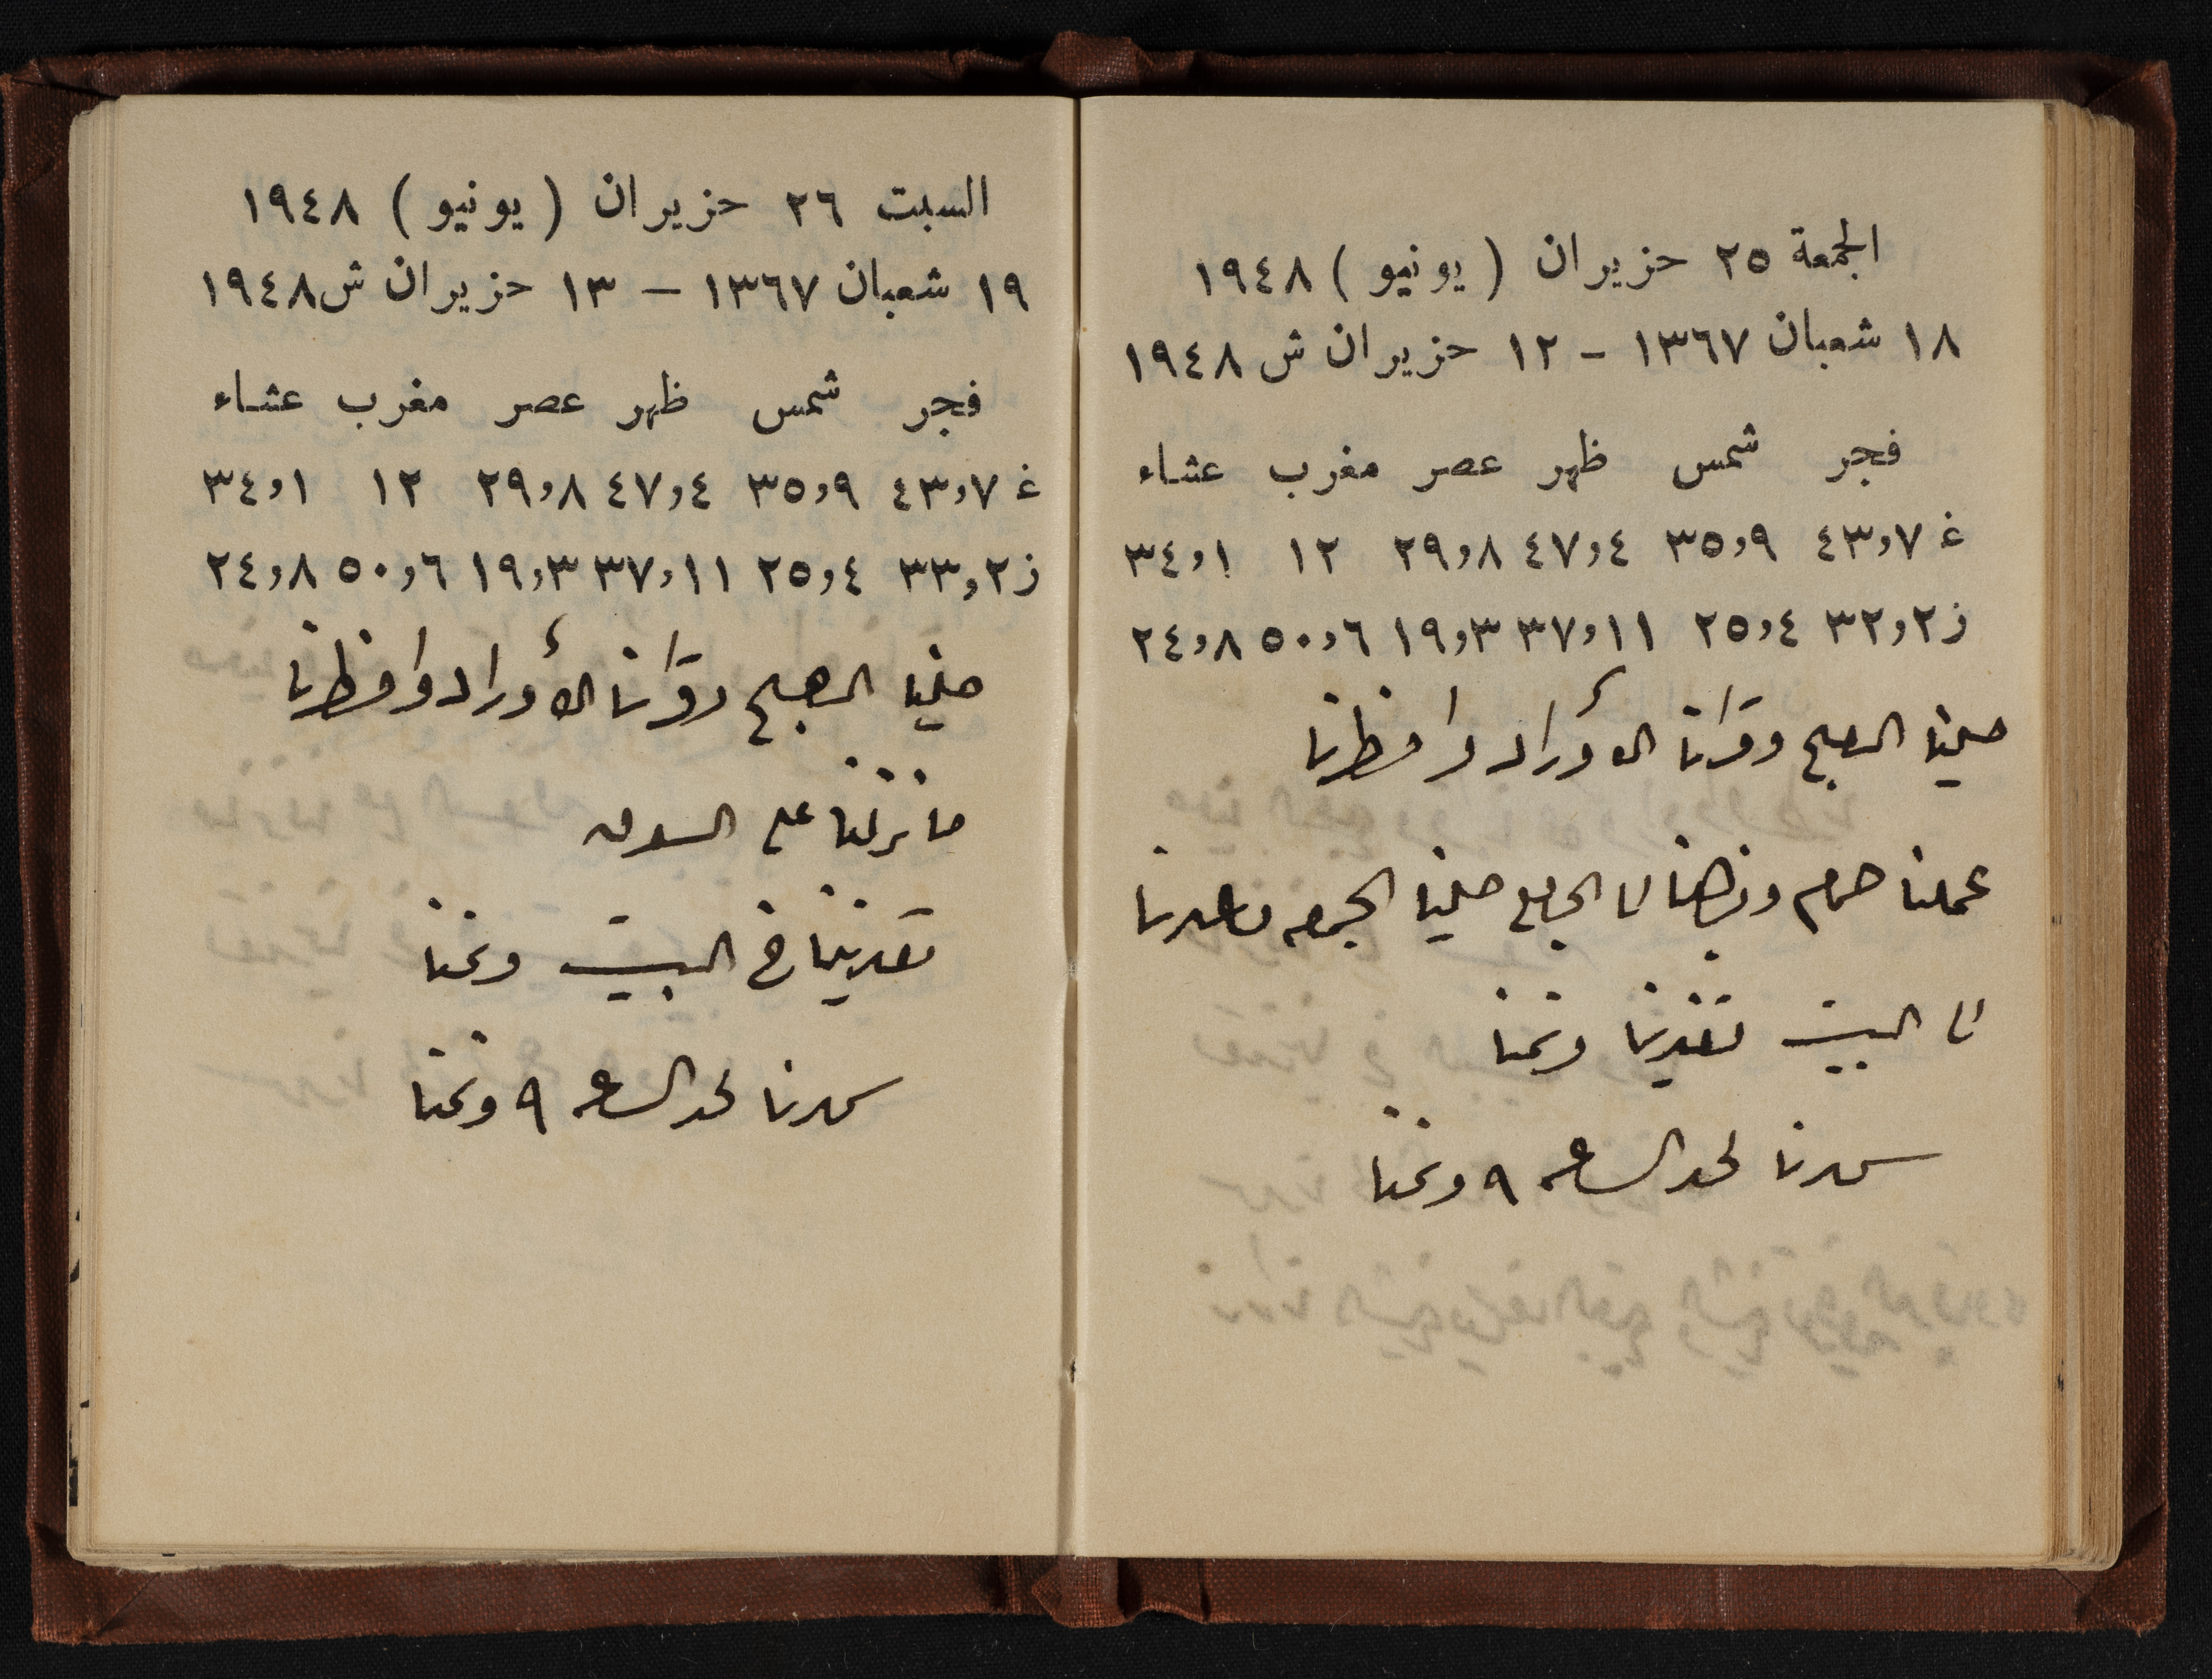 الجمعة ٢٥ حزيران ( يونيو ) ١٩٤٨
١٨ شعبان ١٣٦٧ - ١٢ حزيران ش ١٩٤٨
فجر شمس ظهر عصر مغرب عشاء
غ ٤٣,٧ ٣٥,٩ ٤٧,٤ ٢٩,٨ ١٢ ٣٤,١
ز ٣٢,٢ ٢٥,٤ ٣٧,١١ ١٩,٣ ٥٠,٦ ٢٤,٨
صلينا الصبح وقرأنا الأوراد وافطرنا
عملنا حمام ونزلنا الجامع صلينا الجمعه
البيت تغدينا ونمنا
سهرنا لحد الساعه ٩ ونمنا
السبت ٢٦ حزيران ( يونيو ) ١٩٤٨
١٩ شعبان ١٣٦٧ – ١٣ حزيران ش ١٩٤٨
فجر شمس ظهر عصر مغرب عشاء
غ ٤٣,٧ ٣٥,٩ ٤٧,٤ ٢٩,٨ ١٢ ٣٤,١
ز ٣٣,٢ ٢٥,٤ ٣٧,١١ ١٩,٣ ٥٠,٦ ٢٤,٨
صلينا الصبح وقرأنا الأوراد وافطرنا
ما نزلنا على السوق
تغدينا في البيت ونمنا
سهرنا لحد الساعه ٩ ونمنا